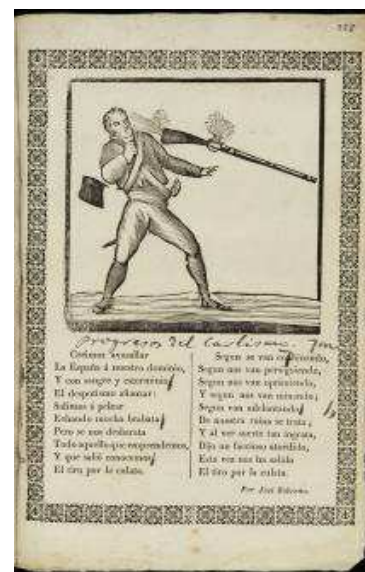 Progresos del Carlismo.
Creimos avasallar
La España á nuestro dominio,
Y con sangre y esterminio
El despotismo afianzar:
Salimos á pelear
Echando mucha bravata
Pero se nos desbarata
Todo aquello que emprendemos,
Y que salió conocemos
El tiro por la culata.
Segun se van
Segun nos van persiguiendo,
Segun nos van oprimiendo,
Y segun nos van
Segun van adelantando
De nuestra ruina se trata;
Y al ver suerte tan ingrata,
Dijo un faccioso aturdido,
Esta vez nos ha salido
El tiro por la culata.
Por José